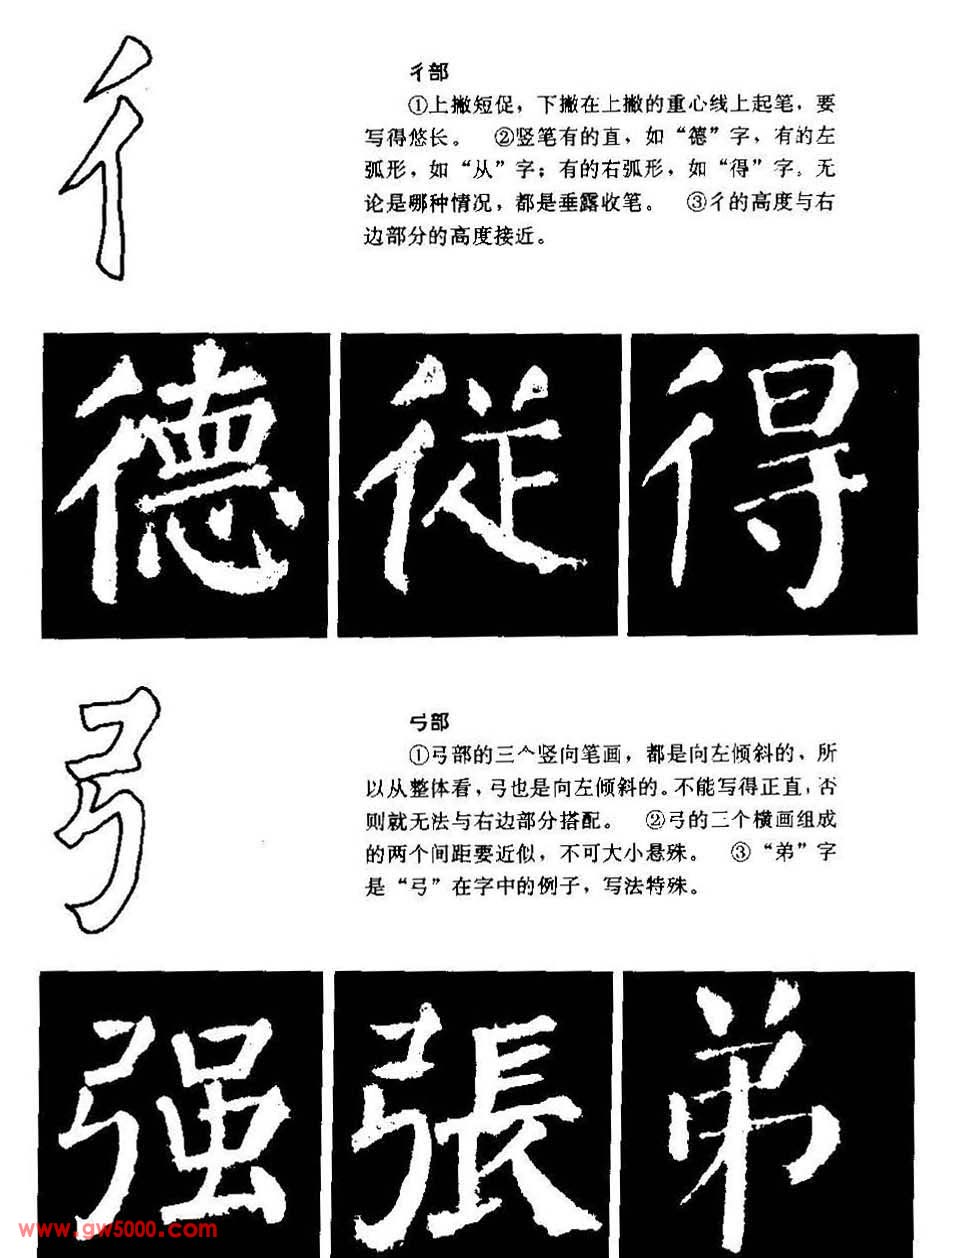 彳
彳部
①上撇短促，下撇在上撇的重心线上起笔，要
写得悠长。　②竖笔有的直，如“德”字，有的左
弧形，如“从”字；有的右弧形，如“得”字。无
论是哪种情况，都是垂露收笔。　③彳的高度与右
边部分的高度接近。
德 従 得
弓
弓部
①弓部的三个竖向笔画，都是向左倾斜的，所
以从整体看，弓也是向左倾斜的。不能写得正直，否
则就无法与右边部分搭配。　②弓的三个横画组成
的两个间距要近似，不可大小悬殊。　③“弟”字
是“弓”在字中的例子，写法特殊。
强 張 弟
www.gw5000.com